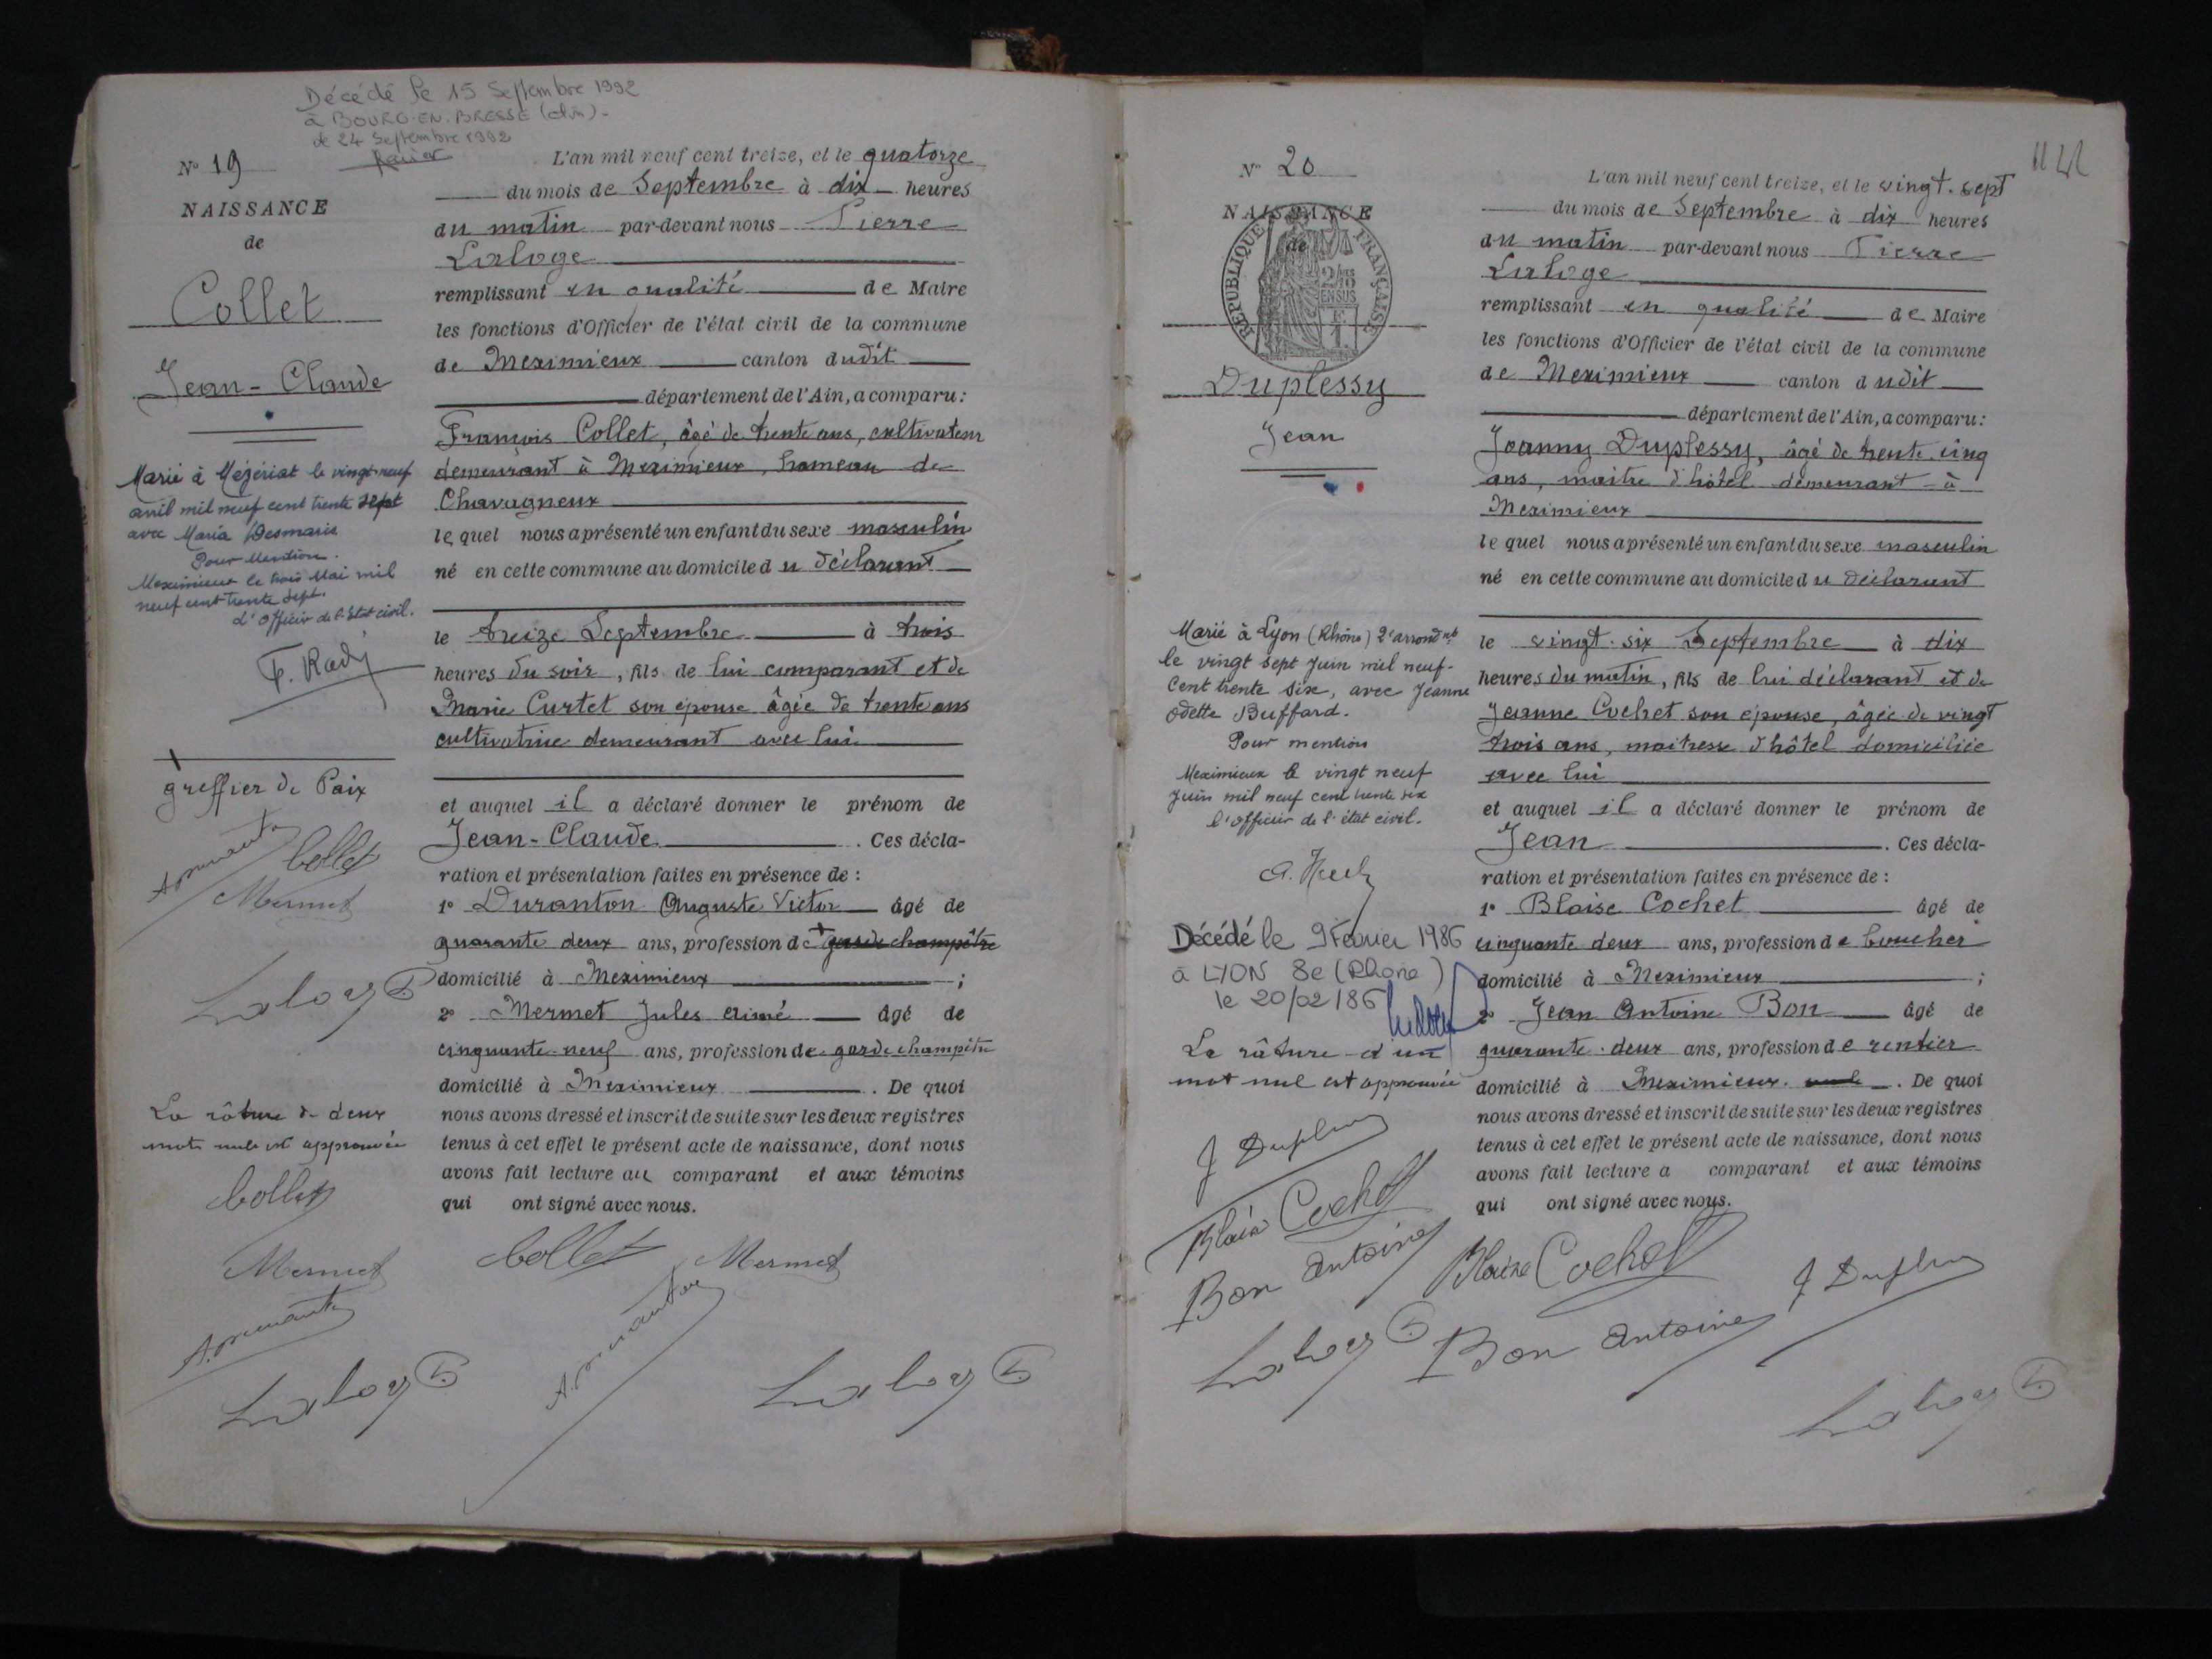 Décédé le 15 Septembre 1992
à BOURG-EN-BRESSE (Ain).
le 24 Septembre 1992
N° 19
NAISSANCE
de
Collet
Jean-Claude
Marié à Mézériat le vingt-neuf
avril mil neuf cent trente sept
avec Maria Desmaris
Pour Mention.
Meximieux le trois Mai mil
neuf cent trente sept.
L'Officier de l'Etat civil.
F. Radj
+
greffier de Paix
Collet
Mermet
La râture de deux
mots nuls est approuvée
Collet
Mermet
L'an mil neuf cent treize, et le quatorze
du mois de Septembre à dix heures
du matin par-devant nous Pierre
Laloge
remplissant en qualité de Maire
les fonctions d'Officier de l'état civil de la commune
de Meximieux canton dudit
département de l'Ain, a comparu :
François Collet, âgé de trente ans, cultivateur
demeurant à Meximieux, hameau de
Chavagneux
lequel nous a présenté un enfant du sexe masculin
né en cette commune au domicile du déclarant
le treize Septembre à trois
heures du soir, fils de lui comparant et de
Marie Curtet son épouse âgée de trente ans
cultivatrice demeurant avec lui
et auquel il a déclaré donner le prénom de
Jean-Claude. Ces décla-
ration et présentation faites en présence de :
1° Duranton Auguste Victor âgé de
quarante deux ans, profession de + garde champêtre
domicilié à Meximieux ;
2° Mermet Jules Aimé âgé de
cinquante-neuf ans, profession de garde champêtre
domicilié à Meximieux. De quoi
nous avons dressé et inscrit de suite sur les deux registres
tenus à cet effet le présent acte de naissance, dont nous
avons fait lecture au comparant et aux témoins
qui ont signé avec nous.
Collet Mermet
N° 20
NAISSANCE
de
RÉPUBLIQUE FRANÇAISE
2/10
EN SUS
Duplessy
Jean
Marié à Lyon (Rhône) 2e arrondt
le vingt sept Juin mil neuf-
Cent trente six, avec Jeanne
Odette Buffard.
Pour mention
Meximieux le vingt neuf
Juin mil neuf cent trente six
l'officier de l'état civil.
Décédé le 9 Février 1986
à LYON 8e (Rhône)
le 20/02/86
La râture d'un
mot nul est approuvée
J Duplessy
Blaise Cochet
Bon Antoine
L'an mil neuf cent treize, et le vingt-sept
du mois de Septembre à dix heures
du matin par-devant nous Pierre
Laloge
remplissant en qualité de Maire
les fonctions d'Officier de l'état civil de la commune
de Meximieux canton dudit
département de l'Ain, a comparu :
Joanny Duplessy, âgé de trente-cinq
ans, maître d'hôtel demeurant à
Meximieux
lequel nous a présenté un enfant du sexe masculin
né en cette commune au domicile du déclarant
le vingt-six Septembre à dix
heures du matin, fils de lui déclarant et de
Jeanne Cochet son épouse, âgée de vingt
trois ans, maîtresse d'hôtel domiciliée
avec lui
et auquel il a déclaré donner le prénom de
Jean. Ces décla-
ration et présentation faites en présence de :
1° Blaise Cochet âgé de
cinquante deux ans, profession de boucher
domicilié à Meximieux ;
2° Jean Antoine Bon âgé de
quarante-deux ans, profession de rentier
domicilié à Meximieux. De quoi
nous avons dressé et inscrit de suite sur les deux registres
tenus à cet effet le présent acte de naissance, dont nous
avons fait lecture a comparant et aux témoins
qui ont signé avec nous.
Blaise Cochet J Duplessy
Bon Antoine